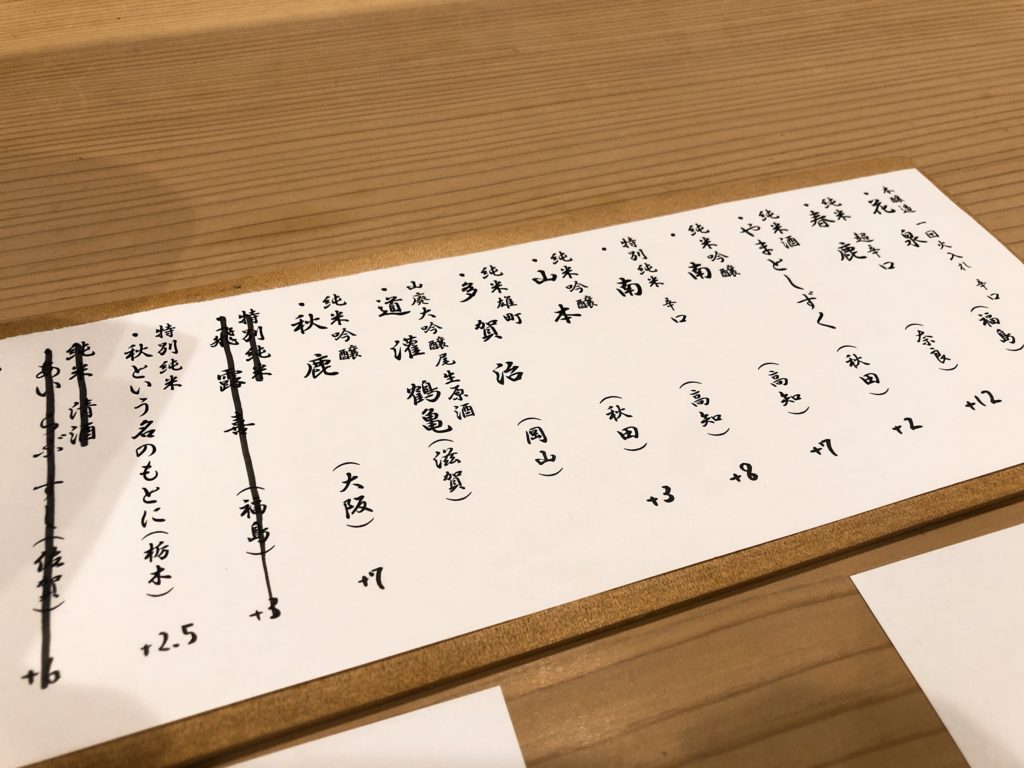 本醸造 一回火入れ 辛口
・花泉 (福島)
純米 超辛口
・春鹿 (奈良) +12
純米酒
・やまとしずく (秋田) +2
純米吟醸
・南 (高知) +7
特別純米 辛口
・南 (高知) +8
純米吟醸
・山本 (秋田) +3
純米雄町
・多賀治 (岡山)
山廃大吟醸尾生原酒
・道灌 鶴亀 (滋賀)
純米吟醸
・秋鹿 (大阪) +7
特別純米
飛露喜 (福島) +3
特別純米
・秋という名のもとに (栃木) +2.5
純米 清酒
(佐賀) +6